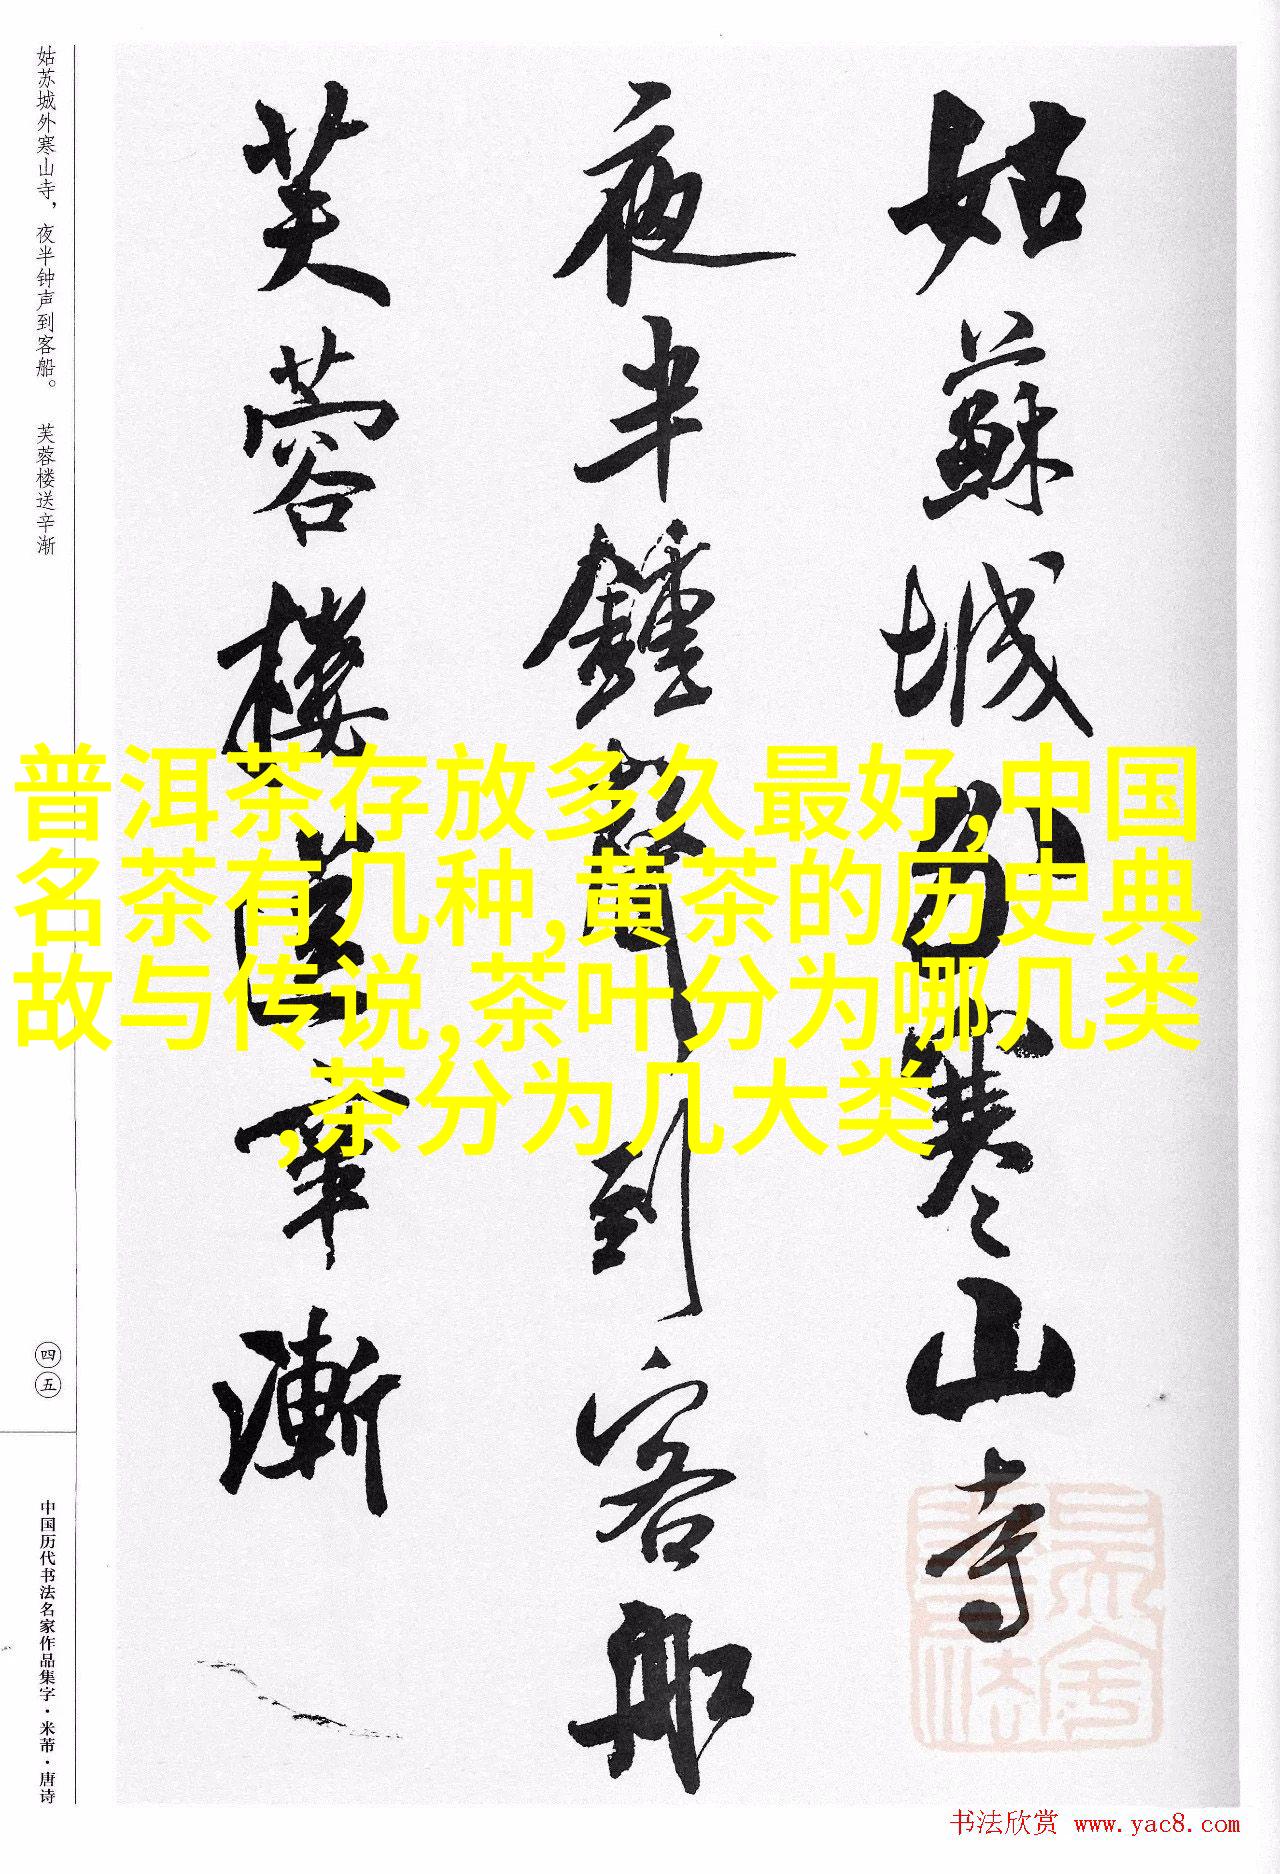 姑苏城外寒山寺，夜半钟声到客船。 芙蓉楼送辛渐
姑蘇城外寒山寺
夜半鍾聲到客船
芙蓉樓送辛漸
普洱茶存放多久最好,中国
名茶有几种,黄茶的历史典
故与传说,茶叶分为哪几类
,茶分为几大类
四五
中国历代书法名家作品集字·米芾·唐诗
书法欣赏 www.yac8.com